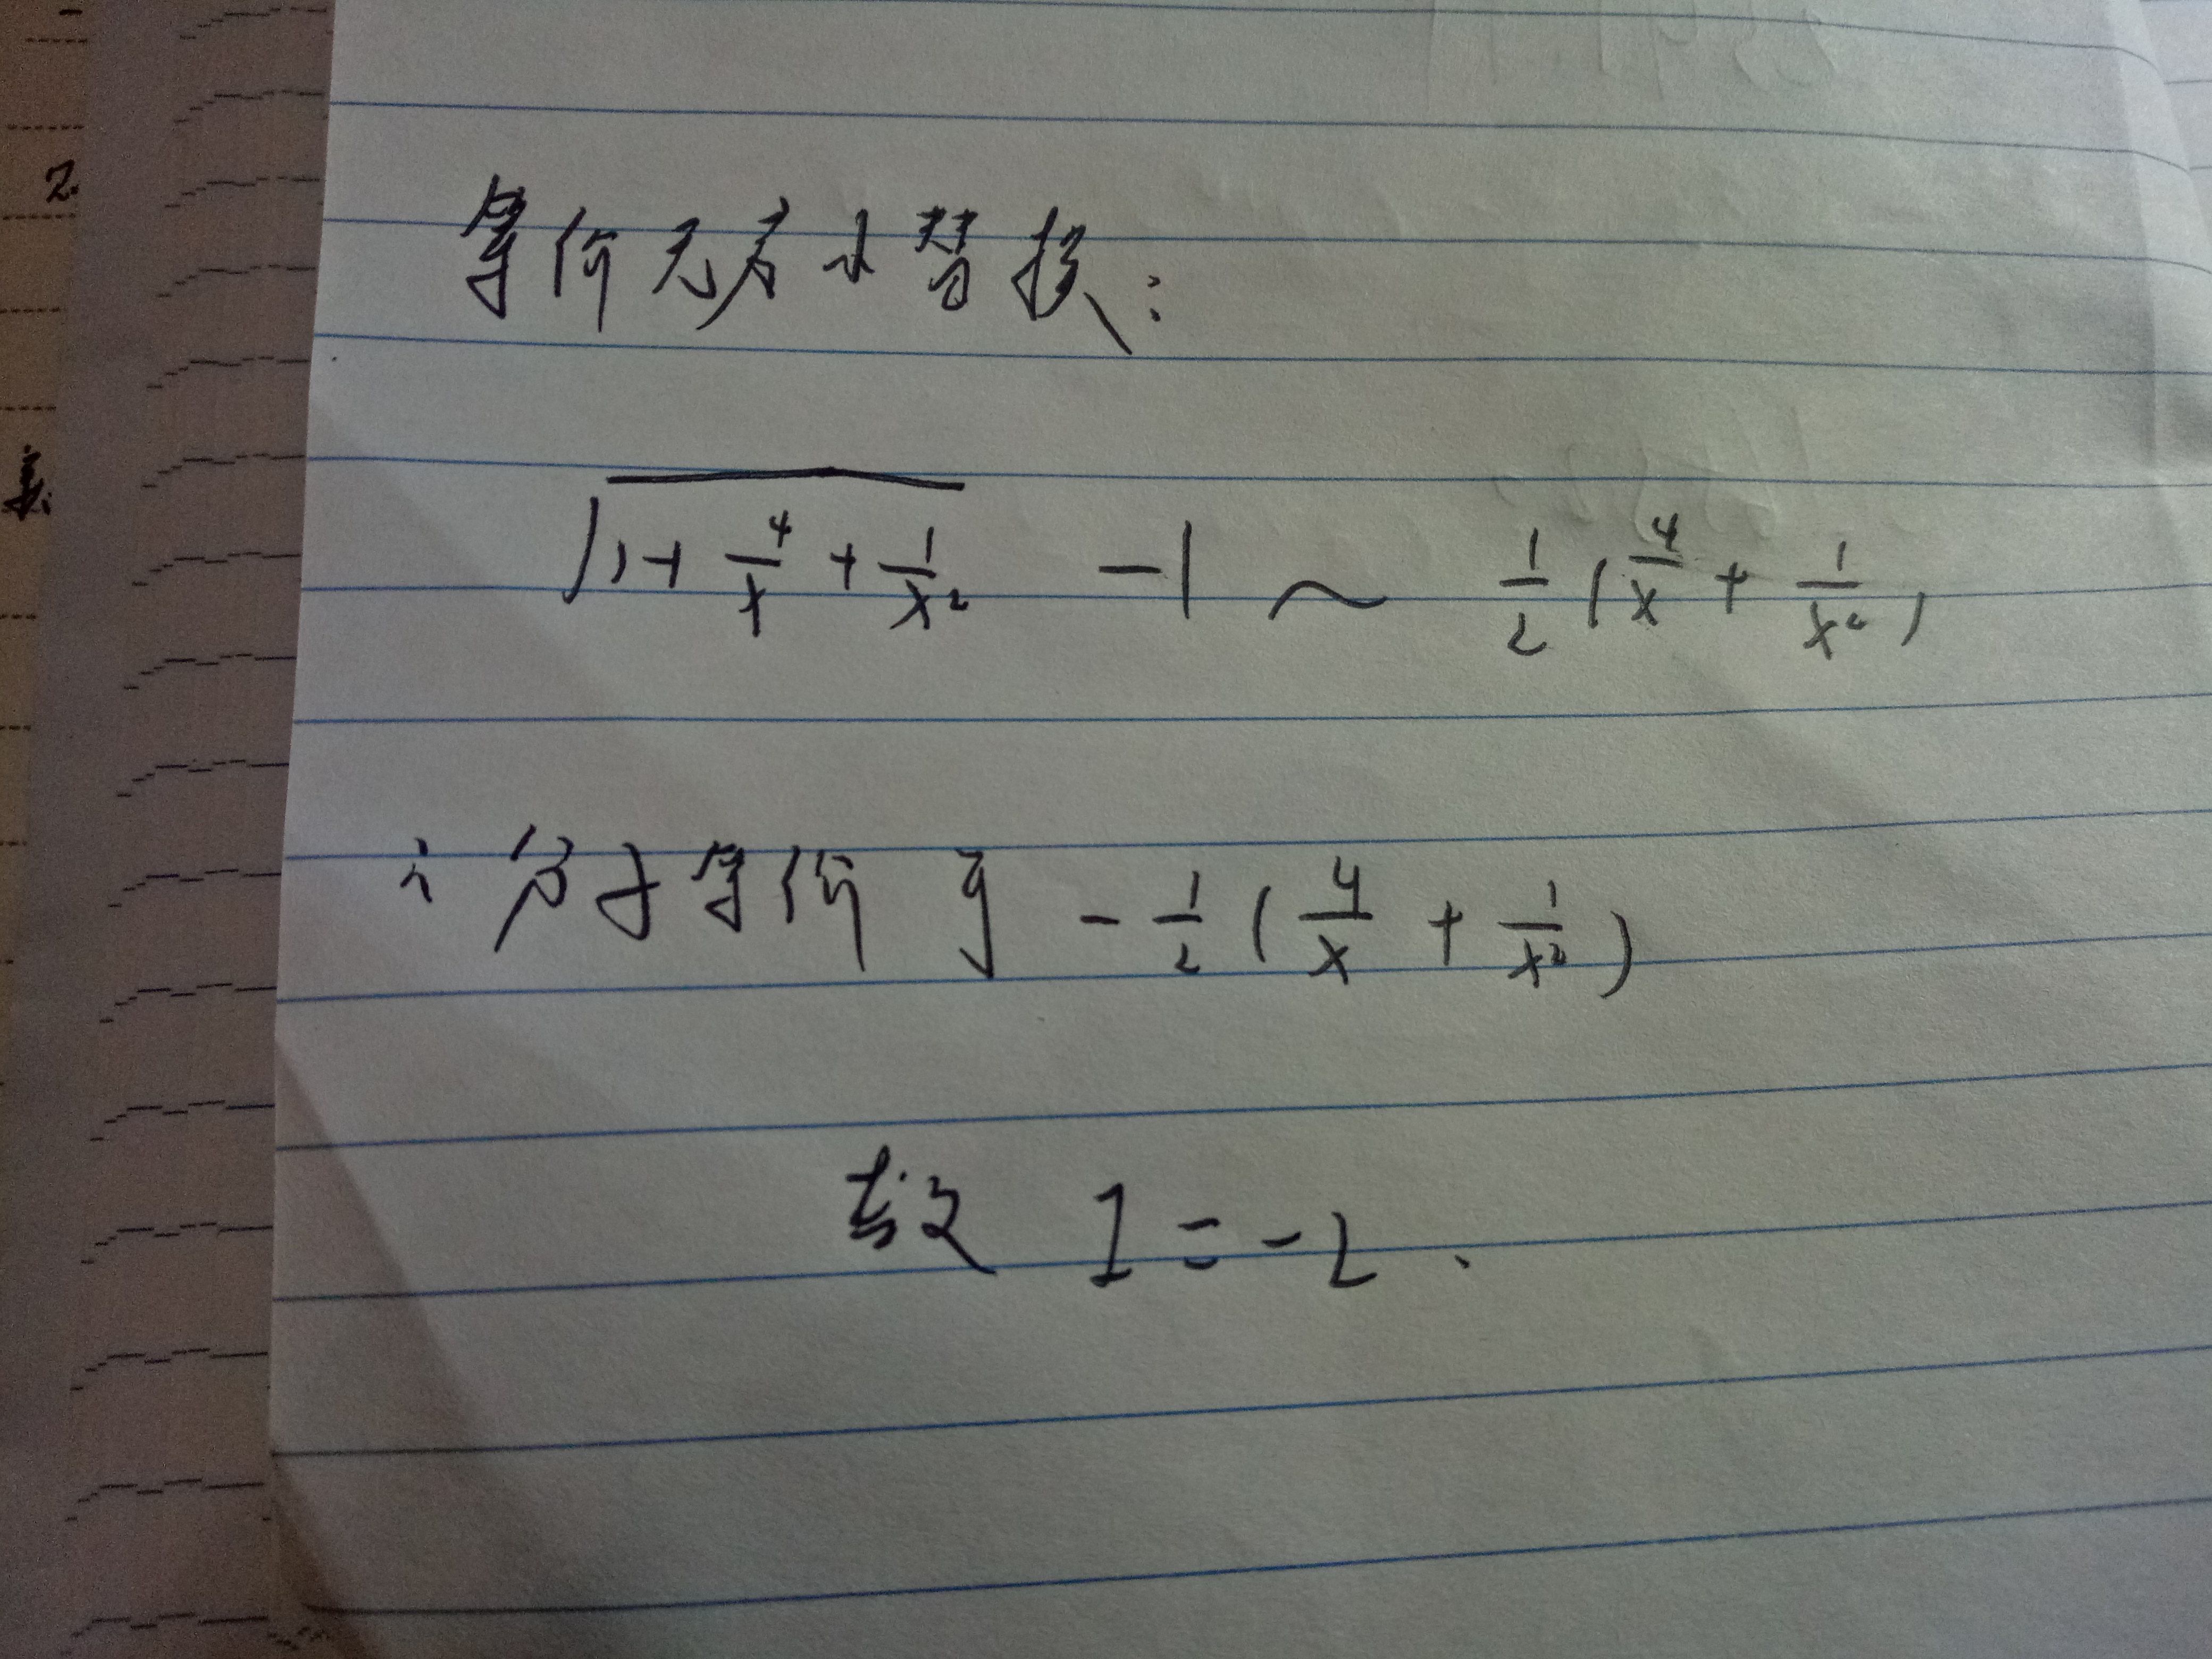 等价无穷小替换：
√(1+4/x+1/x²) -1 ~ 1/2(4/x+1/x²)
∴分子等价于 -1/2(4/x+1/x²)
故 I=-2.